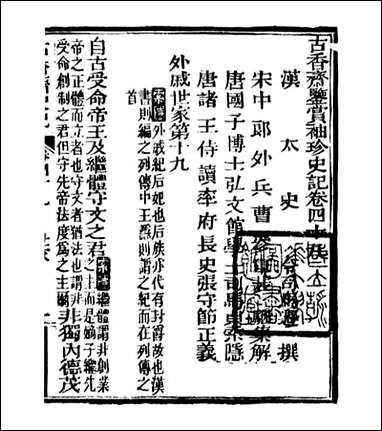 古香齋鑒賞袖珍史記卷四十九
漢太史
撰
宋中郎外兵曹
集解
唐國子博士弘文館學士司馬貞索隱
唐諸王侍讀率府長史張守節正義
外戚世家第十九
索隱外戚紀后妃也后族亦代有封爵故也漢
書則編之列傳中王隱則謂之紀而在列傳之
首
自古受命帝王及繼體守文之君
索隱繼體謂非創業
之主而是嫡子繼先
帝之正體而立者也守文者猶法也謂非
受命創制之君但守先帝法度爲之主爾
非獨內德茂